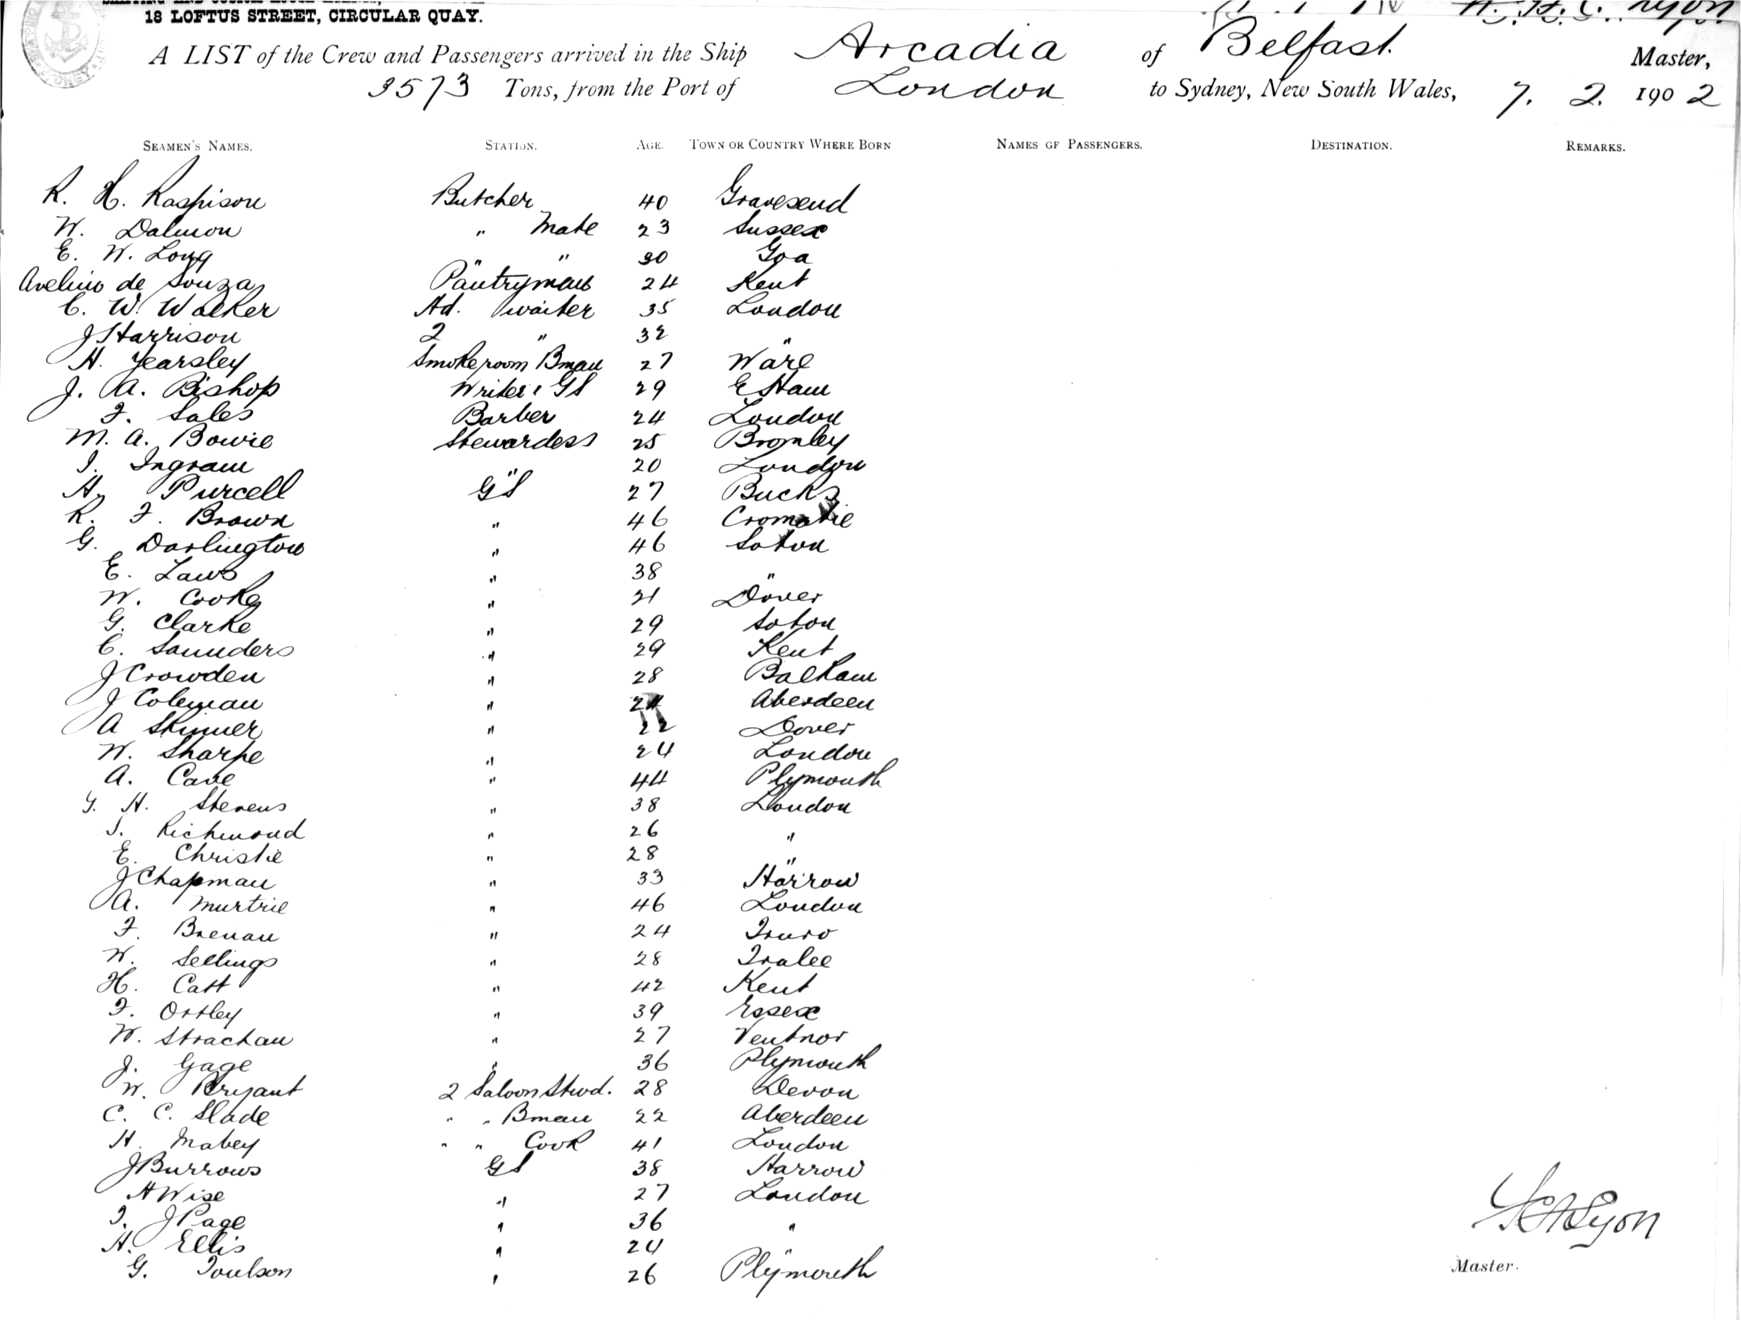 18 LOFTUS STREET, CIRCULAR QUAY.
A LIST of the Crew and Passengers arrived in the Ship Arcadia of Belfast. Master,
3573 Tons, from the Port of London to Sydney, New South Wales, 7. 2. 1902
SEAMEN'S NAMES. STATION. AGE. TOWN OR COUNTRY WHERE BORN NAMES OF PASSENGERS. DESTINATION. REMARKS.
R. H. Raspison Butcher 40 Gravesend
W. Dalmon " Mate 23 Sussex
E. W. Long " " 30 Goa
Avelino de Souza Pantryman 24 Kent
C. W. Walker Hd. waiter 35 London
J Harrison 2 " 32 "
H. Yearsley Smokeroom Bman 27 Ware
J. A. Bishop Writer & GS 29 E Ham
F. Sales Barber 24 London
M. A. Bowie Stewardess 25 Bromley
I. Ingram " 20 London
H. Purcell GS 27 Bucks
R. F. Brown " 46 Cromartie
G. Darlington " 46 Soton
E. Laws " 38 "
W. Cooke " 21 Dover
G. Clarke " 29 Soton
C. Saunders " 29 Kent
J Crowden " 28 Balham
J Coleman " Aberdeen
A Skinner " 22 Dover
W. Sharpe " 24 London
A. Cave " 44 Plymouth
G. H. Stevens " 38 London
J. Richmond " 26 "
E. Christie " 28 "
J Chapman " 33 Harrow
A. Murtrie " 46 London
F. Brenan " 24 Truro
W. Sellings " 28 Tralee
H. Catt " 42 Kent
F. Ottley " 39 Essex
W. Strachan " 27 Ventnor
J. Gage " 36 Plymouth
W. Bryant 2 Saloon Stwd. 28 Devon
C. C. Slade " " Bman 22 Aberdeen
H. Mabey " " Cook 41 London
J Burrows GS 38 Harrow
H Wise " 27 London
T. J Page " 36 "
H. Ellis " 24 "
G. Toulson " 26 Plymouth
Lyon
Master.